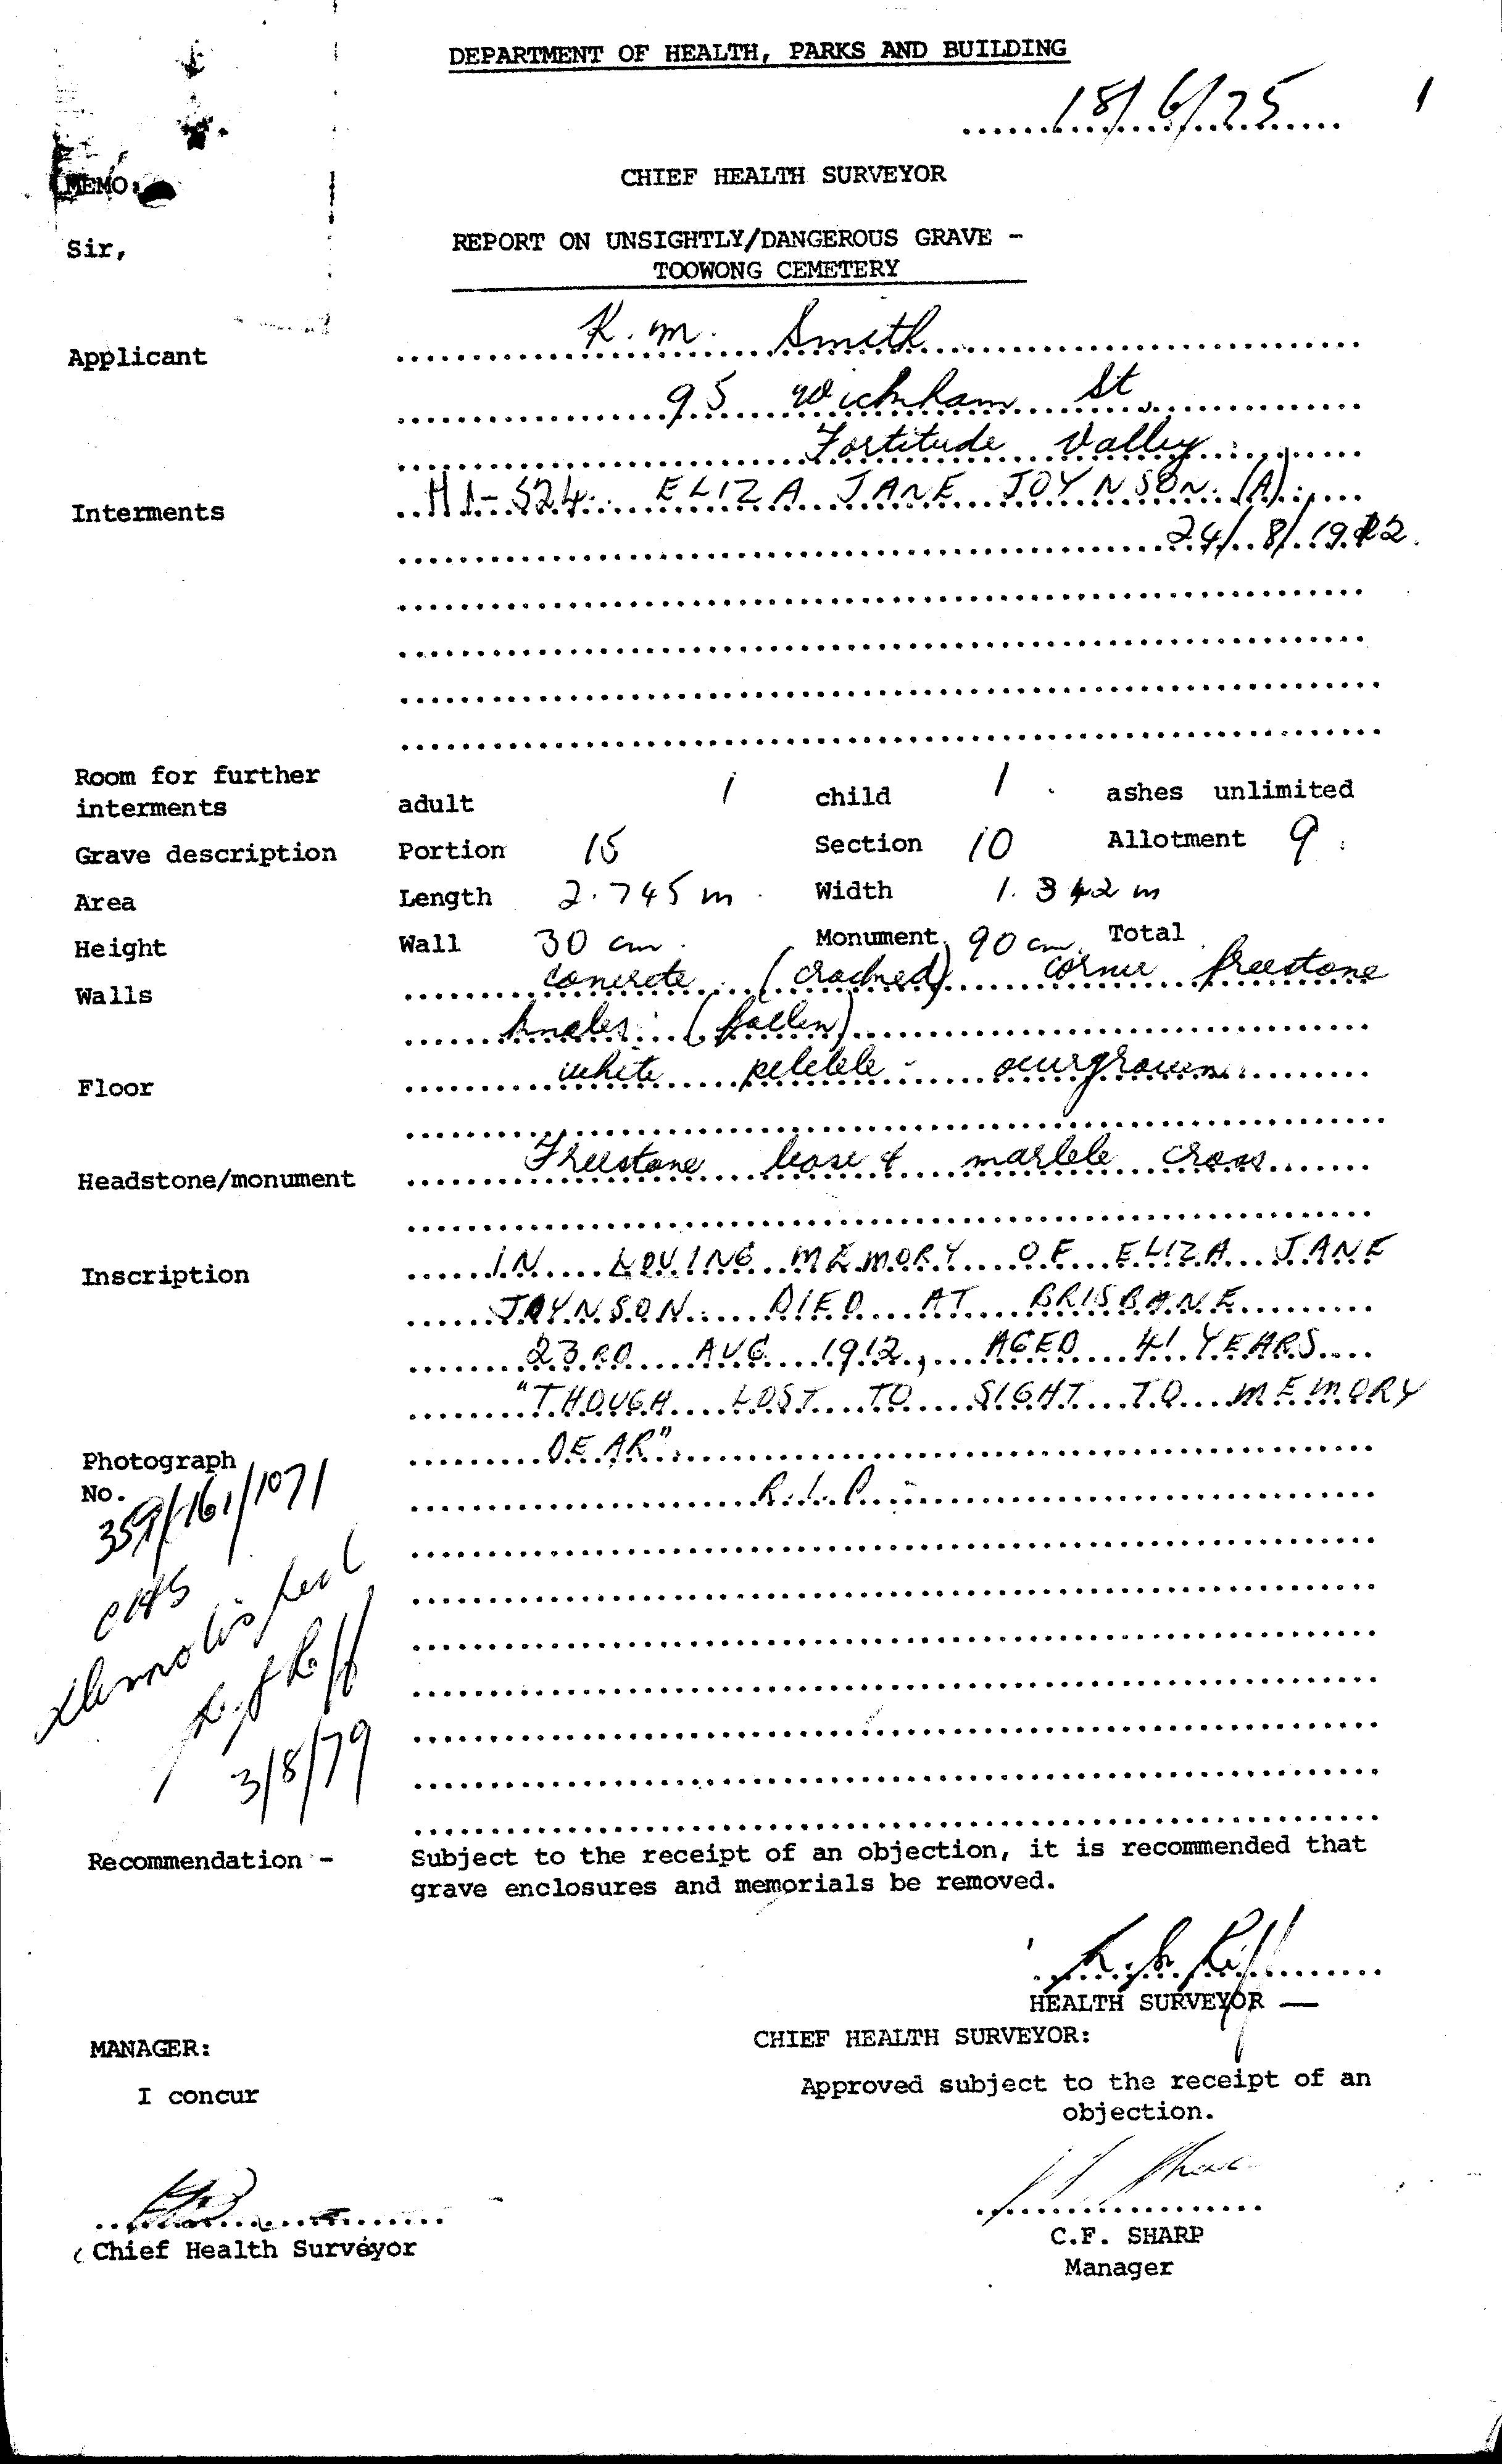 DEPARTMENT OF HEALTH, PARKS AND BUILDING
18/6/75
1
CHIEF HEALTH SURVEYOR
MEMO:
Sir,
REPORT ON UNSIGHTLY/DANGEROUS GRAVE -
TOOWONG CEMETERY
Applicant K.M. Smith
95 Wickham St,
Fortitude Valley
Interments H1-524 ELIZA JANE JOYNSON (A)
24/8/1912.
Room for further
interments adult 1 child 1 ashes unlimited
Grave description Portion 15 Section 10 Allotment 9
Area Length 2.745 m Width 1.342 m
Height Wall 30 cm Monument 90 cm Total
Walls concrete (cracked) corner freestone
(fallen)
Floor white pebble - overgrown
Headstone/monument Freestone base & marble cross
Inscription IN LOVING MEMORY OF ELIZA JANE
JOYNSON DIED AT BRISBANE
23RD AUG 1912, AGED 41 YEARS
"THOUGH LOST TO SIGHT TO MEMORY
DEAR"
Photograph
No. R.I.P.
359/161/1071
CHS
demolished
3/8/79
Recommendation - Subject to the receipt of an objection, it is recommended that
grave enclosures and memorials be removed.
HEALTH SURVEYOR —
MANAGER: CHIEF HEALTH SURVEYOR:
I concur Approved subject to the receipt of an
objection.
C.F. SHARP
Chief Health Surveyor
Manager